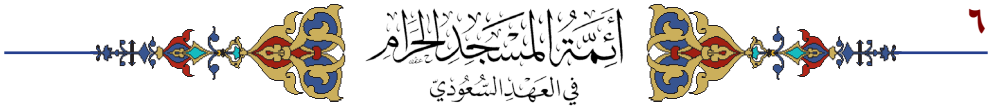 ٦
أَئِمَّةُ الْمَسْجِدِ الْحَرَامِ
فِي الْعَهْدِ السُّعُودِيِّ